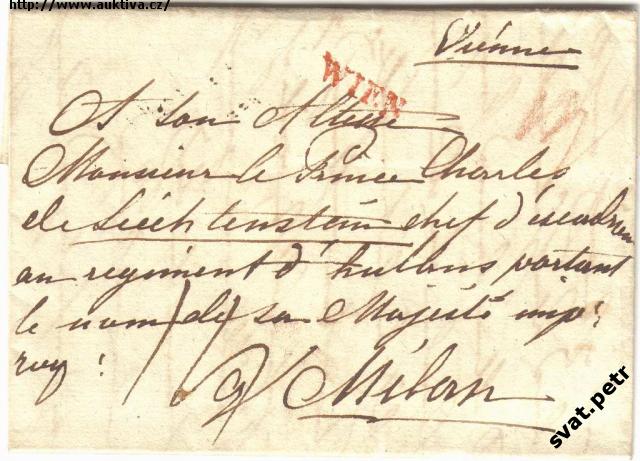 http://www.auktiva.cz/
Viénne
WIEN
A son Altesse
Monsieur le Prince Charles
de Liechtenstein chef d'escadron
au regiment d'hulans portant
le nom de sa Majesté imp:
roy:
à Milan
svat.petr